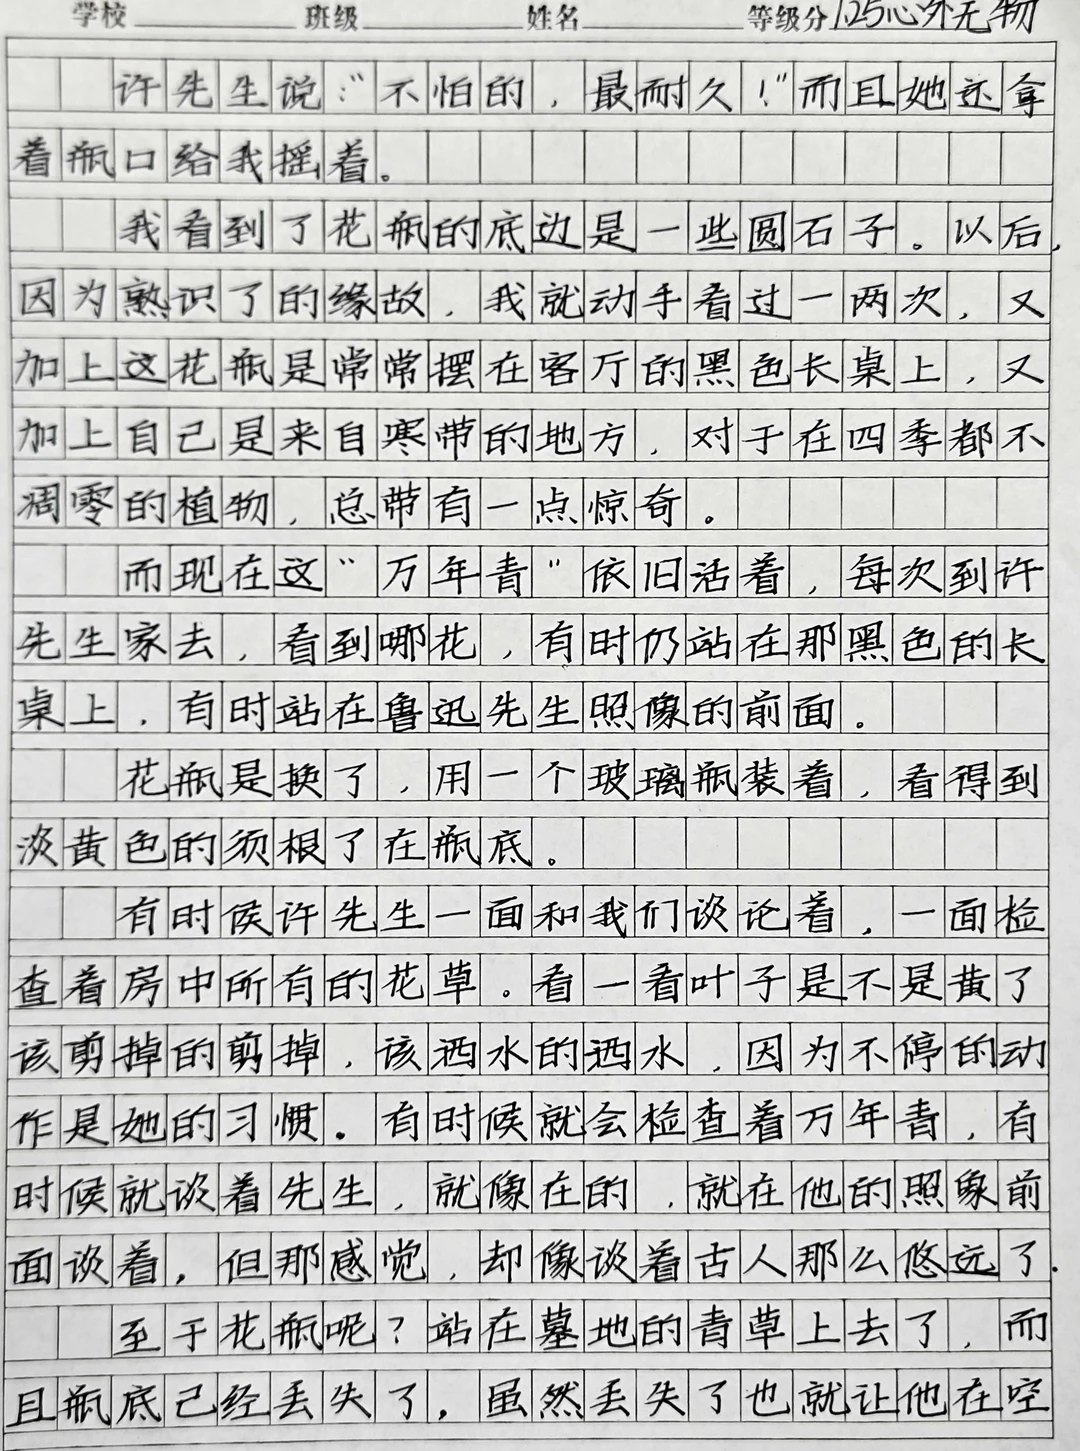 学校 班级 姓名 等级分 125心外无物
许先生说:“不怕的,最耐久!”而且她还拿
着瓶口给我摇着。
我看到了花瓶的底边是一些圆石子。以后,
因为熟识了的缘故,我就动手看过一两次,又
加上这花瓶是常常摆在客厅的黑色长桌上,又
加上自己是来自寒带的地方,对于在四季都不
凋零的植物,总带有一点惊奇。
而现在这“万年青”依旧活着,每次到许
先生家去,看到哪花,有时仍站在那黑色的长
桌上,有时站在鲁迅先生照像的前面。
花瓶是换了,用一个玻璃瓶装着,看得到
淡黄色的须根了在瓶底。
有时候许先生一面和我们谈论着,一面检
查着房中所有的花草。看一看叶子是不是黄了
该剪掉的剪掉,该洒水的洒水,因为不停的动
作是她的习惯。有时候就会检查着万年青,有
时候就谈着先生,就像在的,就在他的照象前
面谈着,但那感觉,却像谈着古人那么悠远了.
至于花瓶呢?站在墓地的青草上去了,而
且瓶底己经丢失了,虽然丢失了也就让他在空